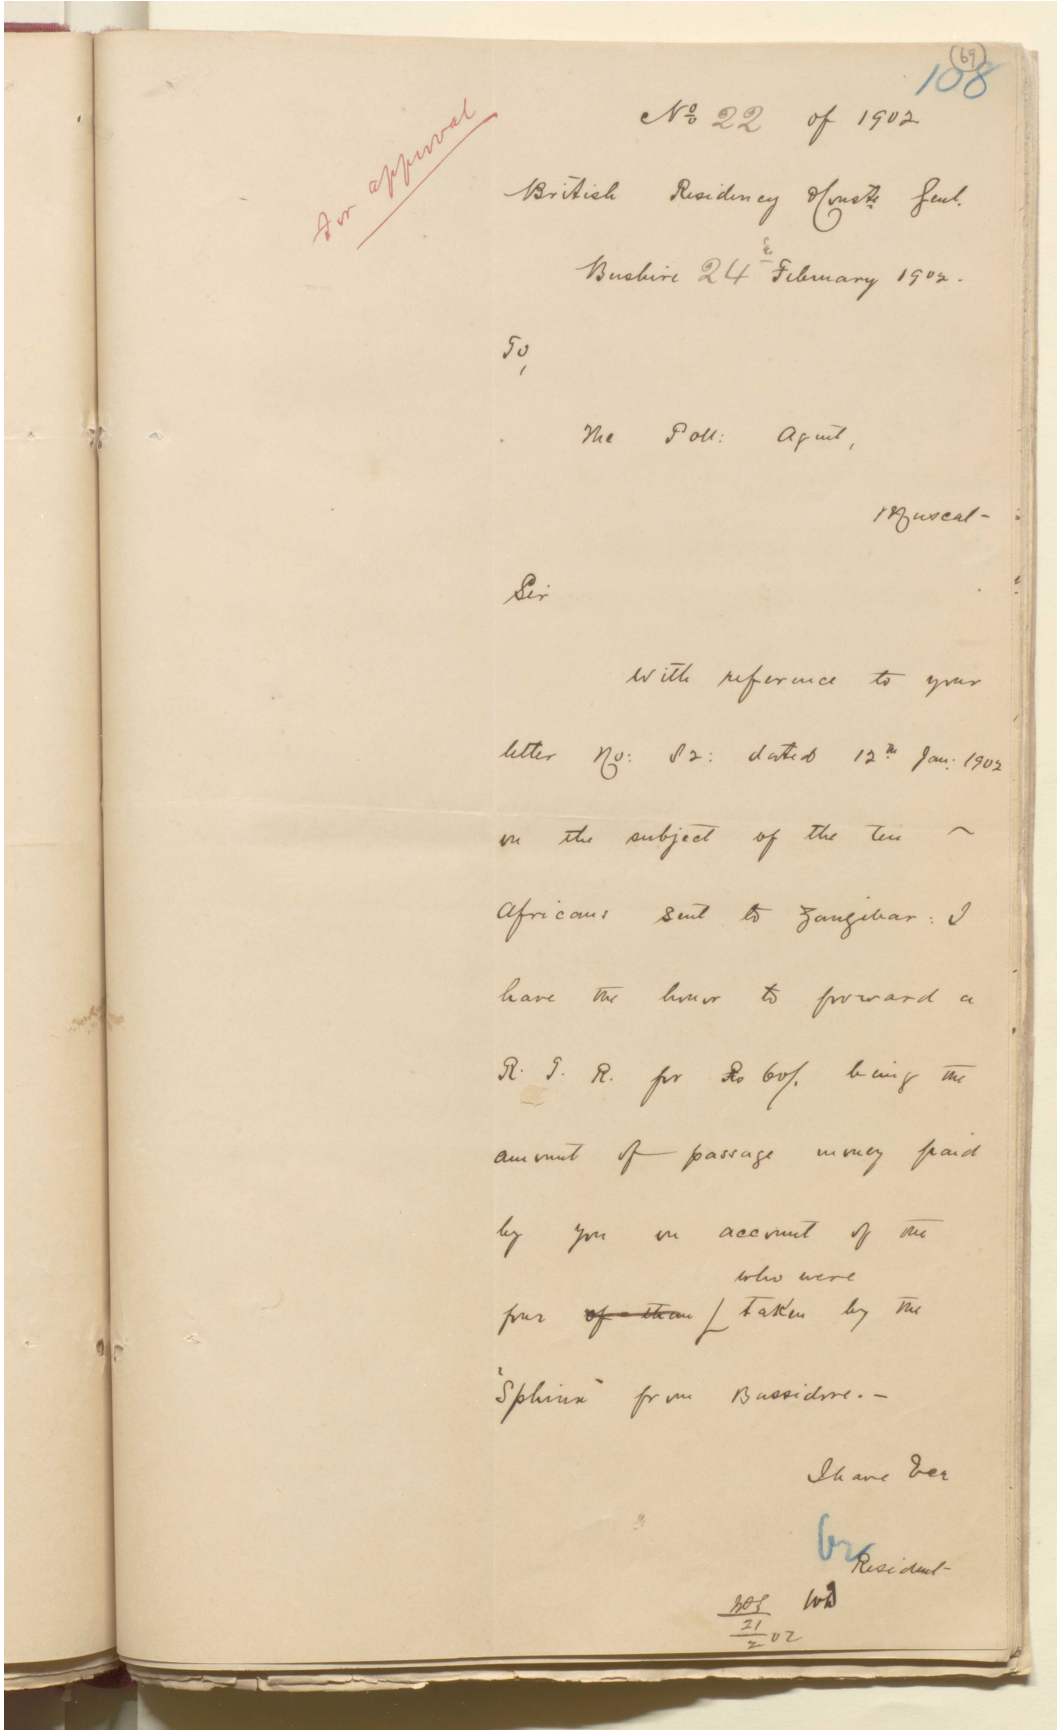 69
108
For approval
No 22 of 1902
British Residency & Conste Genl.
Bushire 24th February 1902.
To,
The Poll: Agent,
Muscat
Sir
With reference to your
letter No: 82: dated 12th Jan: 1902
on the subject of the ten
Africans sent to Zanzibar: I
have the honor to forward a
R. T. R. for Rs 60/. being the
amount of passage money paid
by you on account of the
who were
four of them taken by the
"Sphinx" from Bassidore. -
I have &ca
Resident
21
2 02